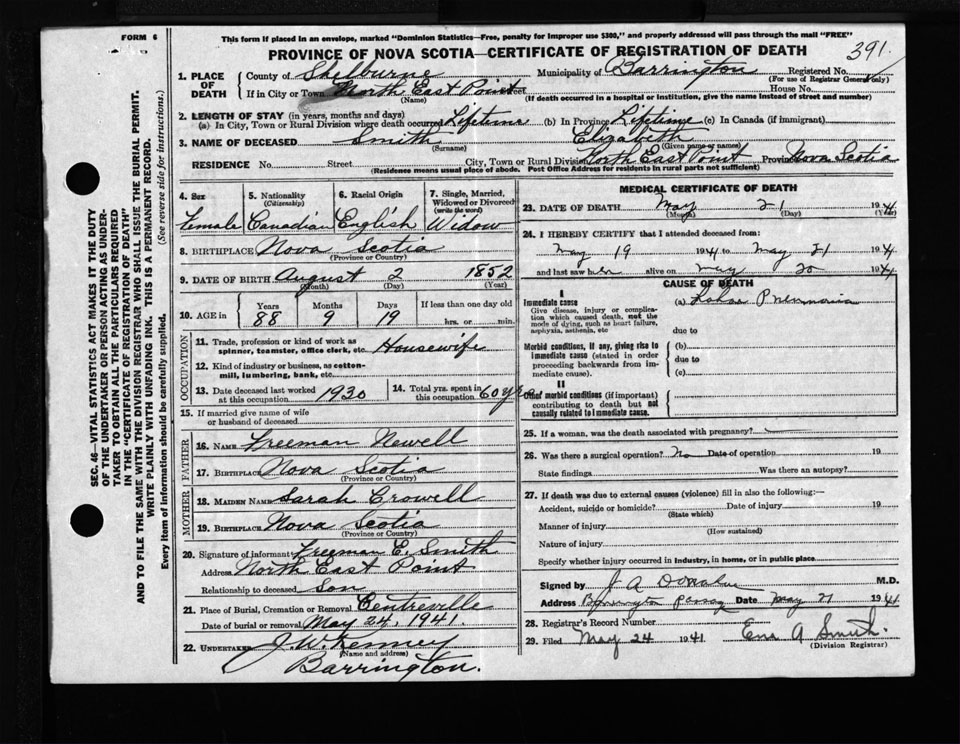 FORM 6
This form if placed in an envelope, marked "Dominion Statistics—Free, penalty for improper use $300," and properly addressed will pass through the mail "FREE"
PROVINCE OF NOVA SCOTIA—CERTIFICATE OF REGISTRATION OF DEATH
391
1. PLACE OF DEATH
County of Shelburne Municipality of Barrington Registered No.
(For use of Registrar General only)
If in City or Town North East Point Street House No.
(Name) (If death occurred in a hospital or institution, give the name instead of street and number)
2. LENGTH OF STAY (in years, months and days)
(a) In City, Town or Rural Division where death occurred Lifetime (b) In Province Lifetime (c) In Canada (if immigrant)
3. NAME OF DECEASED Smith Elizabeth
(Surname) (Given name or names)
RESIDENCE No. Street City, Town or Rural Division North East Point Province Nova Scotia
(Residence means usual place of abode. Post Office Address for residents in rural parts not sufficient)
4. Sex
Female
5. Nationality
(Citizenship)
Canadian
6. Racial Origin
English
7. Single, Married, Widowed or Divorced
(write the word)
Widow
8. BIRTHPLACE Nova Scotia
(Province or Country)
9. DATE OF BIRTH August 2 1852
(Month) (Day) (Year)
10. AGE in
Years Months Days If less than one day old
88 9 19 hrs. or min.
OCCUPATION
11. Trade, profession or kind of work as spinner, teamster, office clerk, etc. Housewife
12. Kind of industry or business, as cotton-mill, lumbering, bank, etc.
13. Date deceased last worked at this occupation 1930
14. Total yrs. spent in this occupation 60 yrs
15. If married give name of wife or husband of deceased
FATHER
16. NAME Freeman Newell
17. BIRTHPLACE Nova Scotia
(Province or Country)
MOTHER
18. MAIDEN NAME Sarah Crowell
19. BIRTHPLACE Nova Scotia
(Province or Country)
20. Signature of informant Freeman E. Smith
Address North East Point
Relationship to deceased Son
21. Place of Burial, Cremation or Removal Centreville
Date of burial or removal May 24, 1941.
22. UNDERTAKER J. W. Kenney
(Name and address)
Barrington.
MEDICAL CERTIFICATE OF DEATH
23. DATE OF DEATH May 21 1941
(Month) (Day) (Year)
24. I HEREBY CERTIFY that I attended deceased from:
May 19 1941 to May 21 1941
and last saw her alive on May 20 1941
CAUSE OF DEATH
I
Immediate cause
Give disease, injury or complication which caused death, not the mode of dying, such as heart failure, asphyxia, asthenia, etc
(a) Lobar Pneumonia
due to
Morbid conditions, if any, giving rise to immediate cause (stated in order proceeding backwards from immediate cause).
(b)
due to
(c)
II
Other morbid conditions (if important) contributing to death but not causally related to immediate cause.
25. If a woman, was the death associated with pregnancy?
26. Was there a surgical operation? No Date of operation 19
State findings Was there an autopsy?
27. If death was due to external causes (violence) fill in also the following:—
Accident, suicide or homicide? Date of injury 19
(State which)
Manner of injury
(How sustained)
Nature of injury
Specify whether injury occurred in industry, in home, or in public place
Signed by J A Donahue M.D.
Address Barrington Passage Date May 21 1941
28. Registrar's Record Number
29. Filed May 24 1941 Ena A Smith.
(Division Registrar)
SEC. 46—VITAL STATISTICS ACT MAKES IT THE DUTY
OF THE UNDERTAKER OR PERSON ACTING AS UNDER-
TAKER TO OBTAIN ALL THE PARTICULARS REQUIRED
IN THE "CERTIFICATE OF REGISTRATION OF DEATH"
AND TO FILE THE SAME WITH THE DIVISION REGISTRAR WHO SHALL ISSUE THE BURIAL PERMIT.
WRITE PLAINLY WITH UNFADING INK. THIS IS A PERMANENT RECORD.
Every item of information should be carefully supplied. (See reverse side for instructions.)